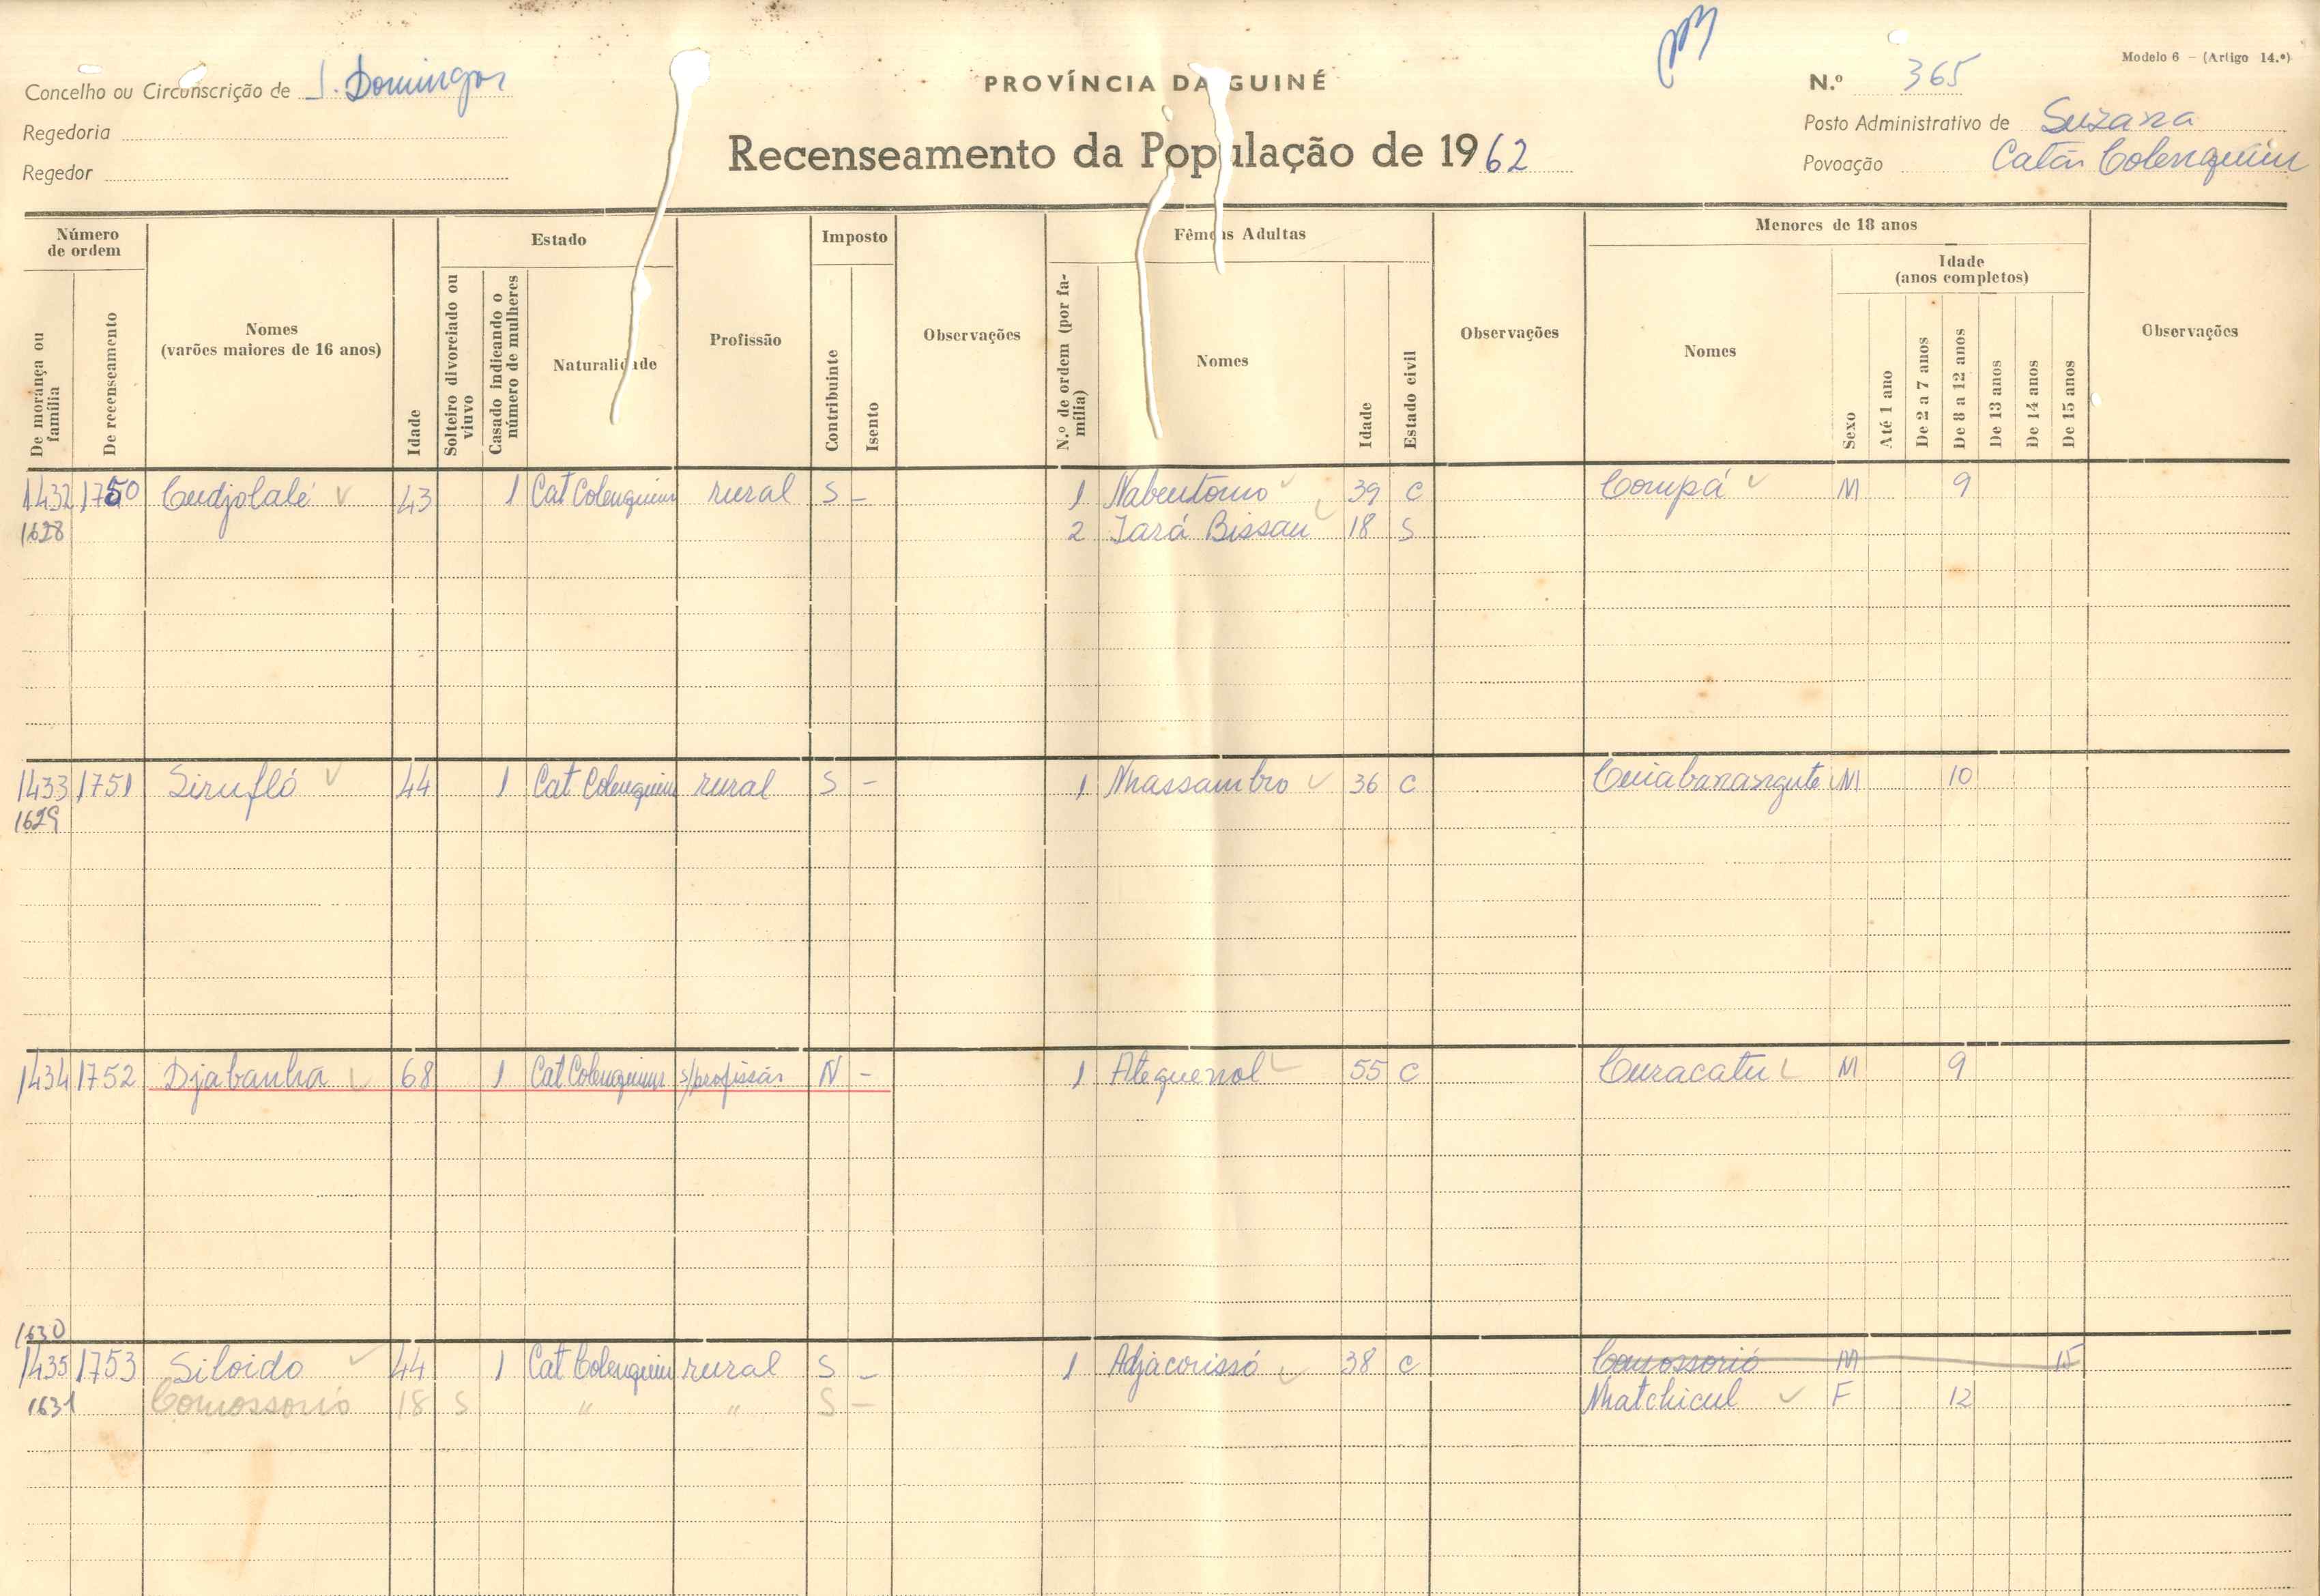 Modelo 6 — (Artigo 14.º)
Concelho ou Circunscrição de S. Domingos
PROVÍNCIA DA GUINÉ
N.º 365
Regedoria
Posto Administrativo de Suzana
Regedor
Recenseamento da População de 1962
Povoação Catão Colenquim
Número de ordem
Estado
Imposto
Fêmeas Adultas
Menores de 18 anos
De morança ou família
De recenseamento
Nomes (varões maiores de 16 anos)
Idade
Solteiro divorciado ou viuvo
Casado indicando o número de mulheres
Naturalidade
Profissão
Contribuinte
Isento
Observações
N.º de ordem (por família)
Nomes
Idade
Estado civil
Observações
Nomes
Sexo
Idade (anos completos)
Até 1 ano
De 2 a 7 anos
De 8 a 12 anos
De 13 anos
De 14 anos
De 15 anos
Observações
1432 1750 Cudjolalé 43 1 Cat Colenquim rural S – 1 Nabentomo 39 C Compá M 9
1628 2 Jará Bissau 18 S
1433 1751 Sirufló 44 1 Cat Colenquim rural S – 1 Nhassambro 36 C Cuiabanangute M 10
1629
1434 1752 Djabanha 68 1 Cat Colenquim s/profissão N – 1 Ateguenol 55 C Curacatu M 9
1630
1435 1753 Siloido 44 1 Cat Colenquim rural S – 1 Adjacorissó 38 C Comossorió M 15
1631 Comossorió 18 S " " S – Nhatchicul F 12